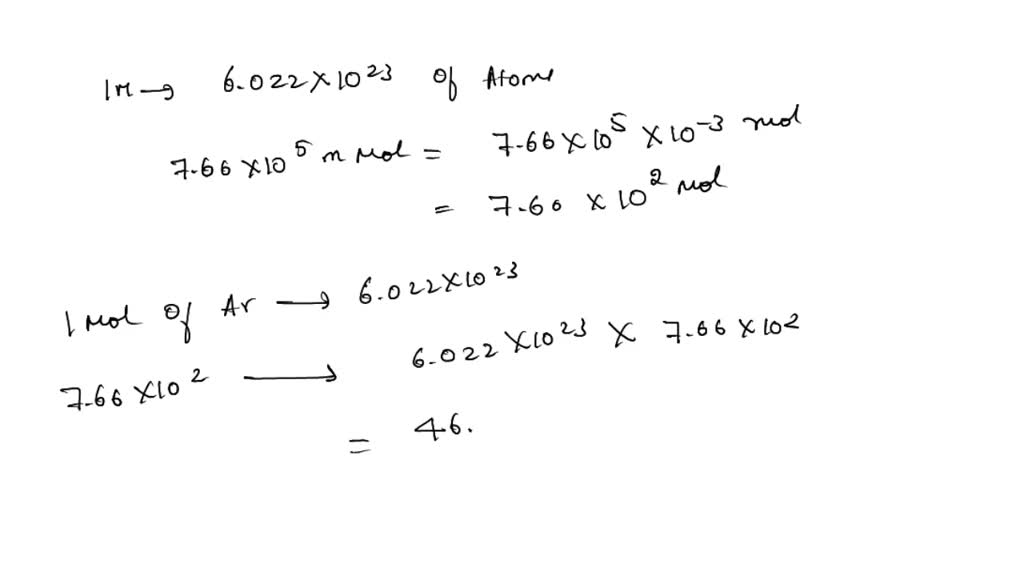 1M → 6.022×10²³ of Atoms
7.66×10⁵ m mol = 7.66×10⁵ × 10⁻³ mol
= 7.60 × 10² mol
1 mol of Ar → 6.022×10²³
7.66×10² → 6.022×10²³ × 7.66×10²
= 46.